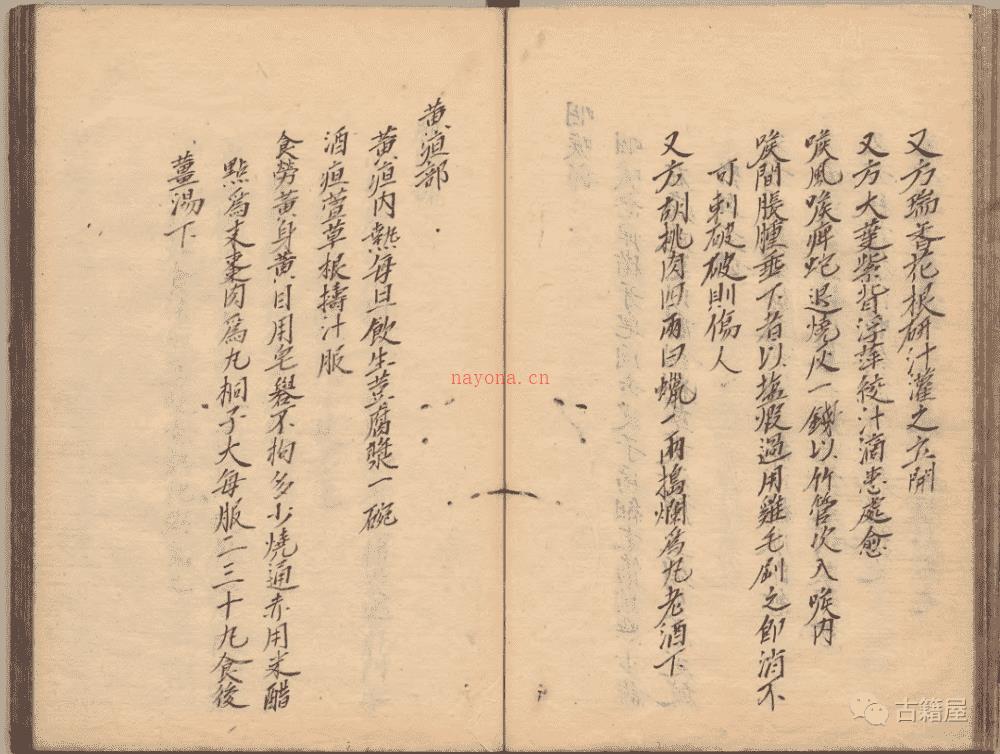 又方瑞香花根研汁灌之立開
又方大葉紫背浮萍絞汁滴患處愈
喉風喉痺蛇退燒灰一錢以竹管吹入喉内
喉間脹腫垂下者以塩煆過用雞毛刷之即消不
可刺破破則傷人
又方胡桃肉四兩白蠟一兩搗爛為丸老酒下
黄疸部
黄疸内熱每旦飲生荳腐漿一碗
酒疸萱草根擣汁服
食勞黄身黄目用皂礬不拘多少燒通赤用米醋
點爲末棗肉爲丸桐子大每服二三十丸食後
薑湯下
nayona.cn
古籍屋